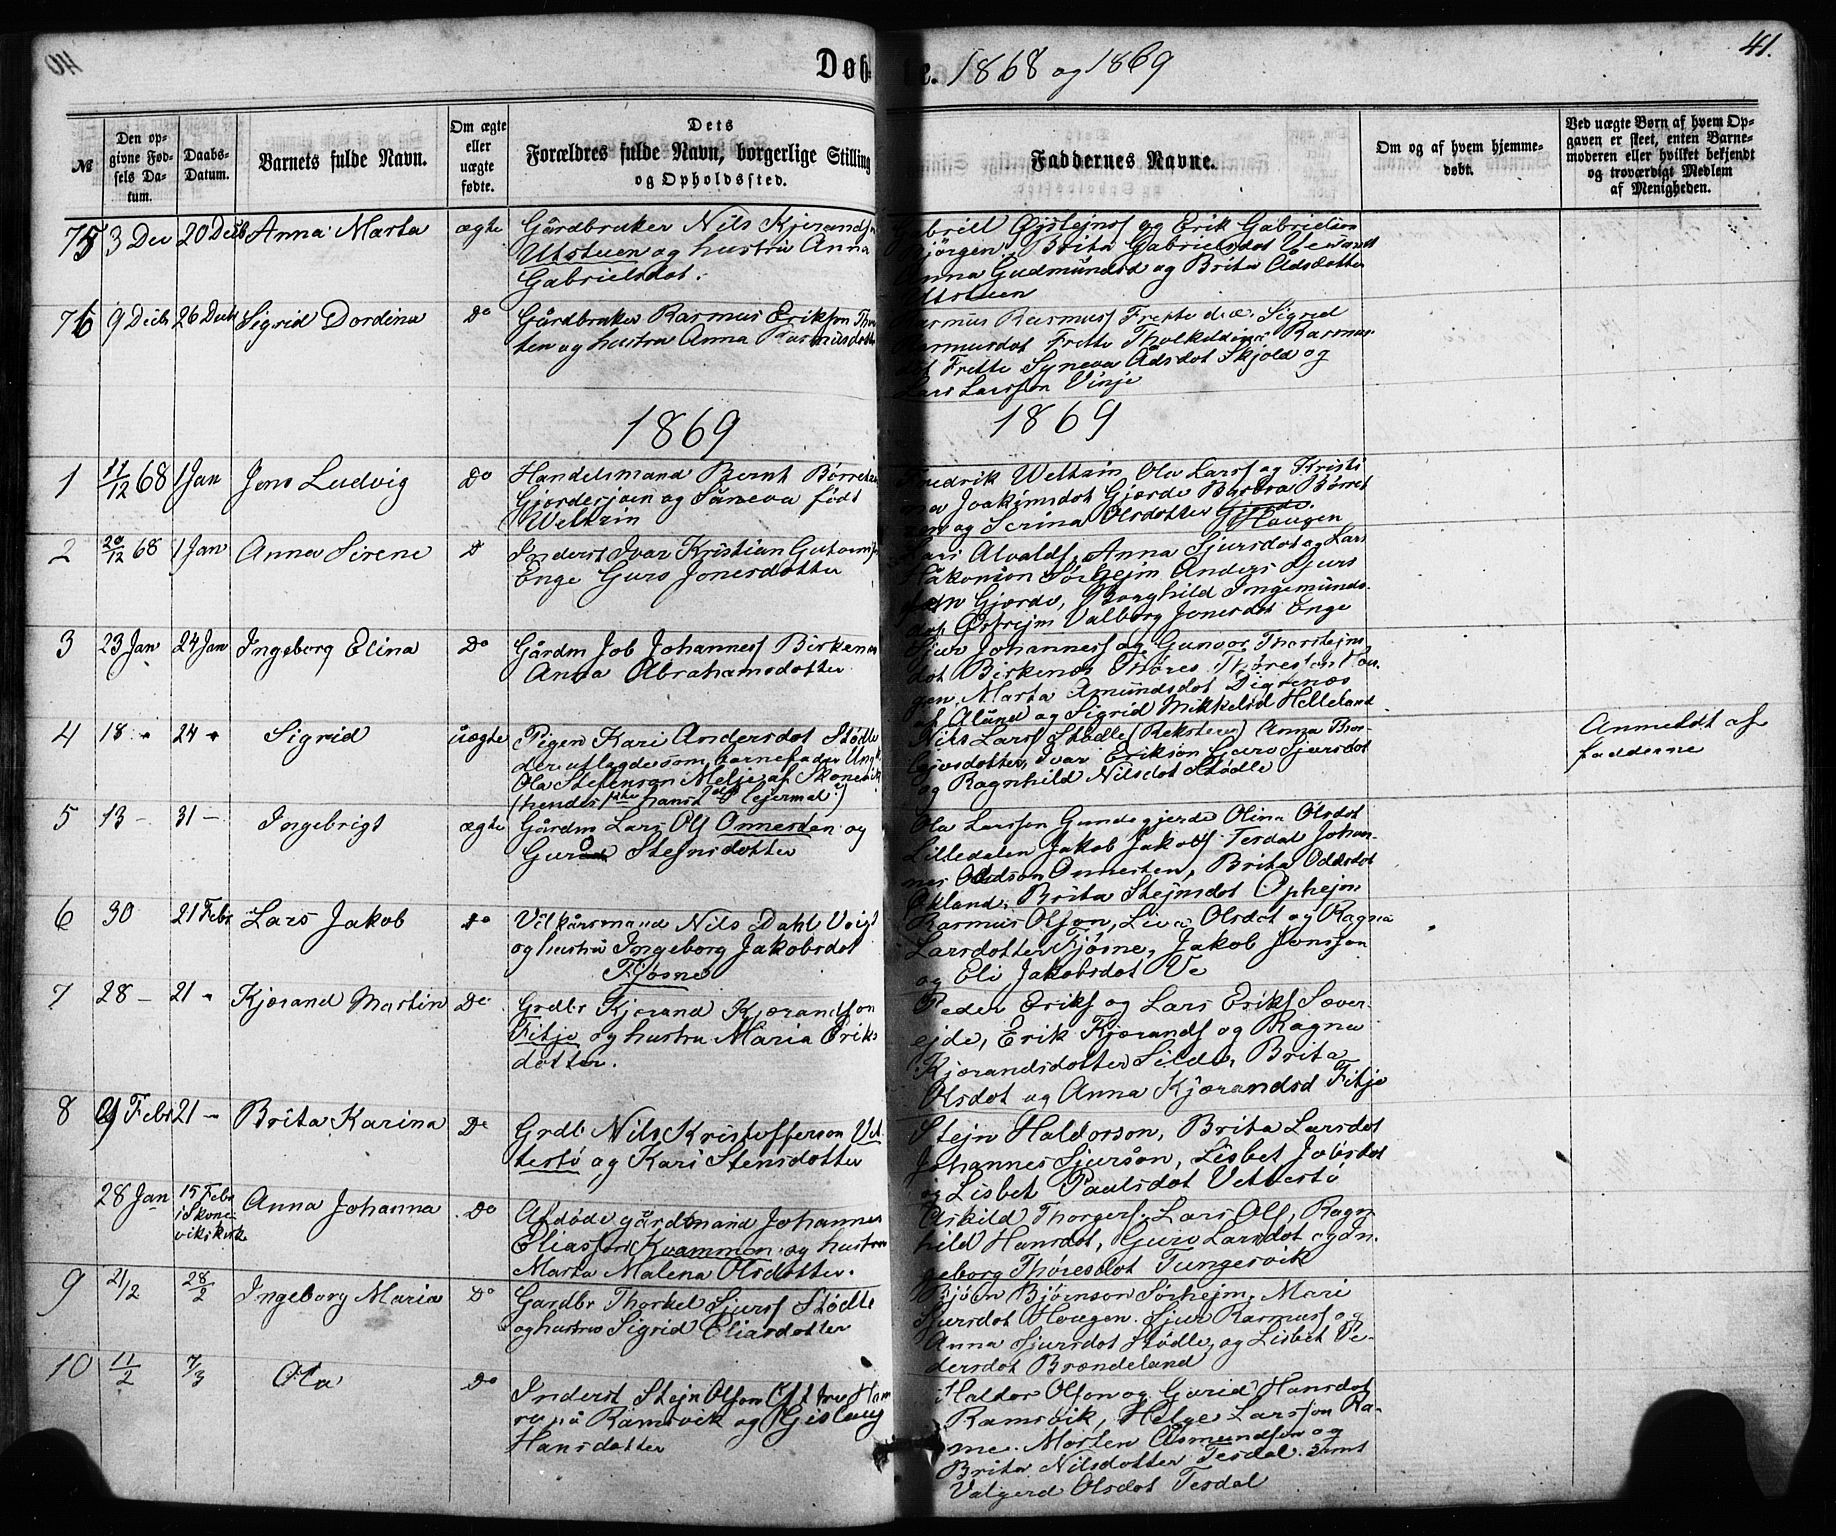 Døbte. 1868 og 1869
41.
№
Den opgivne Fødsels Datum.
Daabs-Datum.
Barnets fulde Navn.
Om ægte eller uægte fødte.
Dets Forældres fulde Navn, borgerlige Stilling og Opholdssted.
Faddernes Navne.
Om og af hvem hjemmedøbt.
Ved uægte Børn af hvem Opgaven er skeet, enten Barnemoderen eller hvilket bekjendt og troværdigt Medlem af Menigheden.
75 3 Dec 20 Decb Anna Marta ægte
Gårdbruker Nils Kjerandsen
Utstuen og hustru Anna
Gabrielsdot.
og Erik Gabrielsen
Brita Gabrielsdot
Gudmundsd og Brita Adsdotter
76 9 Decb 26 Decb Sigrid Dordina Do
Gårdbruker Rasmus Erikson
og hustru Anna Rasmusdotter
Rasmus Frette Sigrid
Rasmusdot Frette Rasmus
Frette Syneva Adsdot Skjold og
Lars Larsson Vinje
1869
1869
1 11/12 68 1 Jan Jens Ludvig Do
Handelsmand Bernt
Gjerdesjoen og født
Weltzin
Fredrik Weltzin Ola Larss og Kristi
na Joakimsdot Gjerde Barbra Børret
og Serina Olsdotter Gjerde.
Haugen
2 20/12 68 1 Jan Anna Sirene D
Inderst Ivar Kristian
Enge Guro Jonesdotter
Anna Sjursdot og Lars
Håkonson Sørhejm Anders Sjurs
Gjerde, Borghild Ingemunds
Valborg Jonesdot Enge
3 23 Jan 24 Jan Ingeborg Elina Do
Gårdm Job Johanness Birkenes
Anna Abrahamsdotter
Johanness og Gunvor Thorstejns
dot Birkenes Thores Thoresson Hau
gen, Marta Amundsdot Digrenæs
af Ølund og Sigrid Mikkelsd Helleland
4 18 " 24 " Sigrid uægte
Pigen Kari Andersdot Stødle
der uflagde som barnefader Ungk
Ola Stefenson Melje af Skonevik
(hendes 1ste hans lejermal)
Nils Larss Stødle (Reksteen) Anna Bro
Ivar Erikson Guro Sjursdot
og Ragnhild Nilsdot Stødle
Anmeldt af
fadderne
5 13 – 31 – Ingebrigt ægte
Gårdm Lars Ols Onnesten og
Guro Stejnsdotter
Ola Larsson Gundegjerde Olina Olsdot
Lilledalen Jakob Jakobs Tesdal Johan-
nes Oddson Onnesten, Brita Oddsdot
Økland, Brita Stejnsdot Ophejm
6 30 21 Febr Lars Jakob Do
Vilkårsmand Nils Dahl Voigt
og hustru Ingeborg Jakobsdot
Fjøsne
Rasmus Olson, Liva Olsdot og Ragna
Larsdotter Fjøsne, Jakob Jonsson
og Eli Jakobsdot Ve
7 28 – 21 – Kjærand Martin Do
Grdbr Kjerand Kjærandson
Fitje og hustru Maria Eriks
dotter.
Peder Eriks og Lars Eriks Sæver
ejde, Erik Kjærands og Ragna
Kjærandsdotter Silde, Brita
Olsdot og Anna Kjærandsd Fitje
8 9 Febr 21 – Brita Karina Do
Grdb Nils Kristofferson Vet
testø og Kari Stensdotter
Stejn Haldorson, Brita Larsdot
Johannes Sjurson, Lisbet Jobsdot
og Lisbet Paulsdot Vettestø
28 Jan 15 Febr i Skonevikskirke Anna Johanna Do
Afdøde gårdmand Johannes
Eliasson Kvammen og hustru
Marta Malena Olsdotter.
Askild Thorgers, Lars Ols, Ragn
hild Hansdot, Guro Larsdot og In
geborg Thoresdot Tungesvik
9 21/2 28/2 Ingeborg Maria Do
Gardbr Thorkel Sjurss Stødle
og hustru Sigrid Eliasdotter
Bjørn Bjørnson Sørhejm, Mari
Sjursdot Haugen. Sjur Rasmuss og
Anna Sjursdot Stødle og Lisbet Pe-
dersdot Brændeland
10 11/2 7/3 Ola Do
Inderst Stejn Olson
Ramsvik og Gislaug
Hansdotter
Haldor Olson og Gurid Hansdot
Ramsvik, Helge Larsson Ra-
me. Morten Asmundson og
Brita Nilsdotter Tesdal samt
Valgerd Olsdot Tesdal